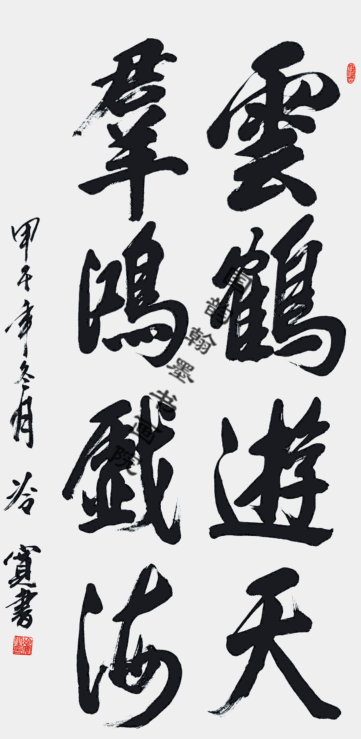 雲鶴遊天
羣鴻戲海
甲午年冬月 冷寬書
翰墨书画院